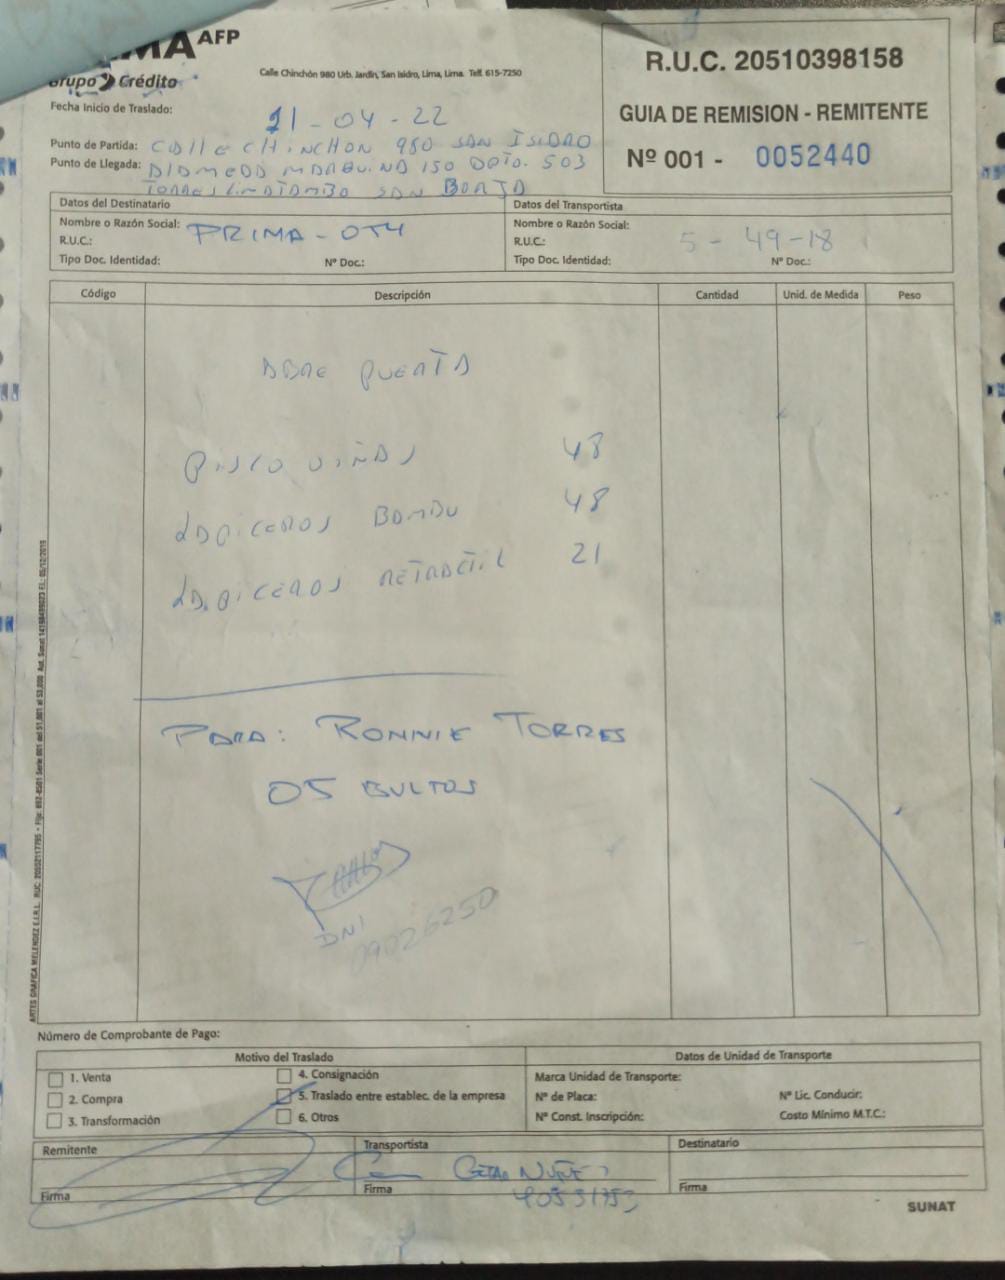 IMA AFP
Grupo Crédito
Calle Chinchón 980 Urb. Jardín, San Isidro, Lima, Lima. Telf. 615-7250
R.U.C. 20510398158
GUIA DE REMISION - REMITENTE
Nº 001 - 0052440
Fecha Inicio de Traslado: 21-04-22
Punto de Partida: CALLE CHINCHON 980 SAN ISIDRO
Punto de Llegada: DIOMEDD MARQUINA 150 DPTO. 503
TORRES LIMATAMBO SAN BORJA
Datos del Destinatario
Datos del Transportista
Nombre o Razón Social: PRIMA-OT4
R.U.C.:
Tipo Doc. Identidad: Nº Doc.:
Nombre o Razón Social:
R.U.C.: 5-49-18
Tipo Doc. Identidad: Nº Doc.:
Código Descripción Cantidad Unid. de Medida Peso
ABRE PUERTA
PISCO VIÑAS 48
LAPICEROS BAMBU 48
LAPICEROS RETRACTIL 21
PARA: RONNIE TORRES
05 BULTOS
DNI
09026250
Número de Comprobante de Pago:
Motivo del Traslado
1. Venta
2. Compra
3. Transformación
4. Consignación
5. Traslado entre establec. de la empresa
6. Otros
Datos de Unidad de Transporte
Marca Unidad de Transporte:
Nº de Placa: Nº Lic. Conducir:
Nº Const. Inscripción: Costo Mínimo M.T.C.:
Remitente
Firma
Transportista
NUÑEZ
Firma
40531753
Destinatario
Firma
SUNAT